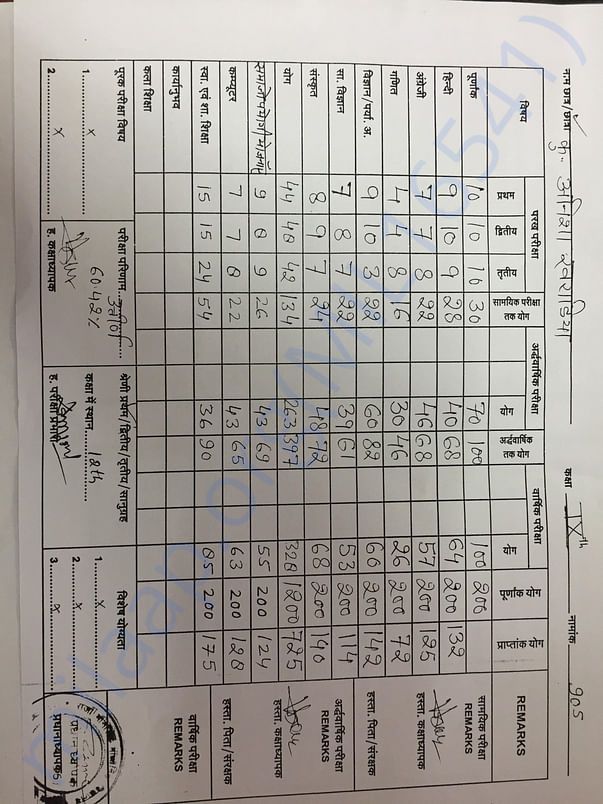 नाम छात्र/छात्रा कु. कक्षा IX th नामांक 905
विषय परख परीक्षा अर्द्धवार्षिक परीक्षा वार्षिक परीक्षा पूर्णांक योग प्राप्तांक योग REMARKS
प्रथम द्वितीय तृतीय सामयिक परीक्षा तक योग योग अर्द्धवार्षिक तक योग योग
पूर्णांक 10 10 10 30 70 100 100 200
हिन्दी 9 10 9 28 40 68 64 200 132
अंग्रेजी 7 7 8 22 46 68 57 200 125
गणित 4 4 8 16 30 46 26 200 72
विज्ञान/पर्या. अ. 9 10 3 22 60 82 60 200 142
सा. विज्ञान 7 8 7 22 39 61 53 200 114
संस्कृत 8 9 7 24 48 72 68 200 140
योग 44 48 42 134 263 397 328 1200 725
9 8 9 26 43 69 55 200 124
कम्प्यूटर 7 7 8 22 43 65 63 200 128
स्वा. एवं शा. शिक्षा 15 15 24 54 36 90 85 200 175
कार्यानुभव
कला शिक्षा
सामयिक परीक्षा
REMARKS
हस्ता. कक्षाध्यापक
हस्ता. पिता/संरक्षक
अर्द्धवार्षिक परीक्षा
REMARKS
हस्ता. कक्षाध्यापक
हस्ता. पिता/संरक्षक
वार्षिक परीक्षा
REMARKS
पूरक परीक्षा विषय
1. x
2. x
परीक्षा परिणाम उत्तीर्ण
60.42%
ह. कक्षाध्यापक
श्रेणी प्रथम/द्वितीय/तृतीय/सानुग्रह
कक्षा में स्थान 12th
ह. परीक्षा प्रभारी
विशेष योग्यता
1. x
2. x
3. x
प्रधानाध्यापक